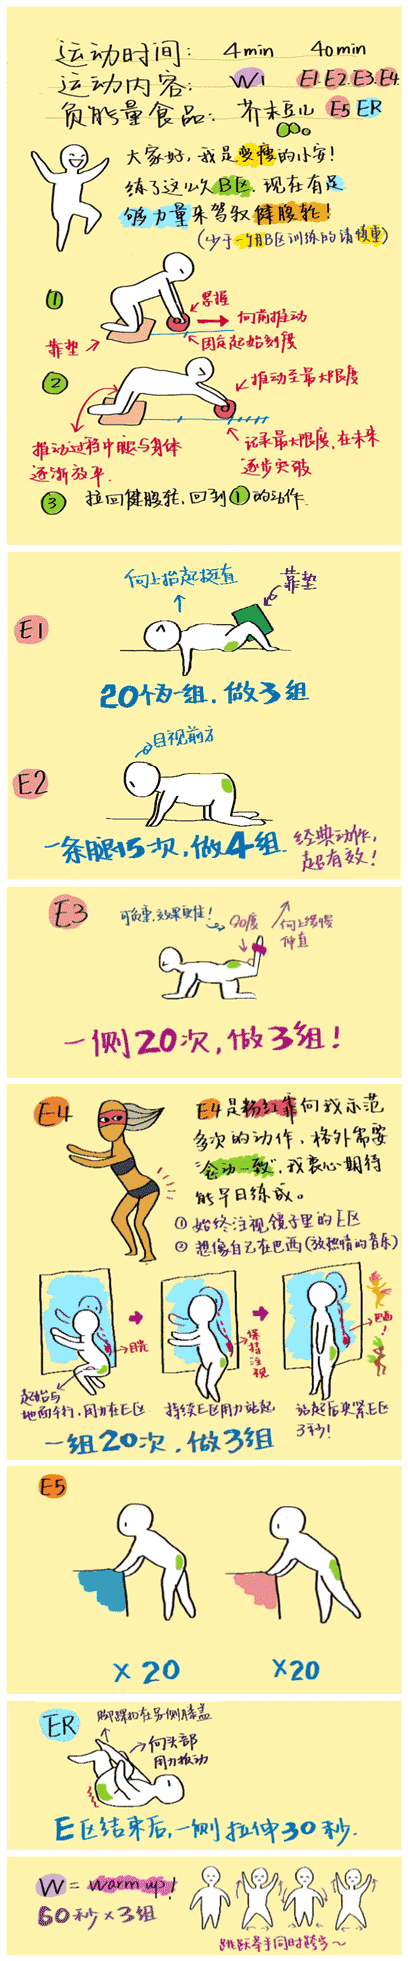 运动时间: 4min 40min
运动内容: W1 E1.E2.E3.E4.
负能量食品: 芥末豆儿 E5 ER
大家好,我是变瘦的小安!
练了这么久B区,现在有足
够力量来驾驭健腹轮!
(少于一个月B区训练的请慎重)
①
掌握
向前推动
靠垫
固定起始刻度
②
推动至最大限度
推动过程中腿与身体
逐渐放平.
记录最大限度,在未来
逐步突破
③ 拉回健腹轮,回到①的动作.
向上抬起挺直
靠垫
E1
20个为一组,做3组
目视前方
E2
一条腿15次,做4组.
经典动作,
超有效!
E3
可负重,效果更佳!
90度
向上缓慢
伸直
一侧20次,做3组!
E4
E4是粉红靠向我示范
多次的动作,格外需要
“念动一致”,我衷心期待
能早日练成。
① 始终注视镜子里的E区
② 想像自己在巴西(放热情的音乐)
目光
保持注视
巴西!
起始与
地面平行,用力在E区
持续E区用力站起
站起后夹紧E区
3秒!
一组20次,做3组
E5
×20
×20
ER
脚踝扣在另侧膝盖
向头部
用力扳动
E区结束后,一侧拉伸30秒.
W = warm up!
60秒×3组
跳跃举手同时跨步~